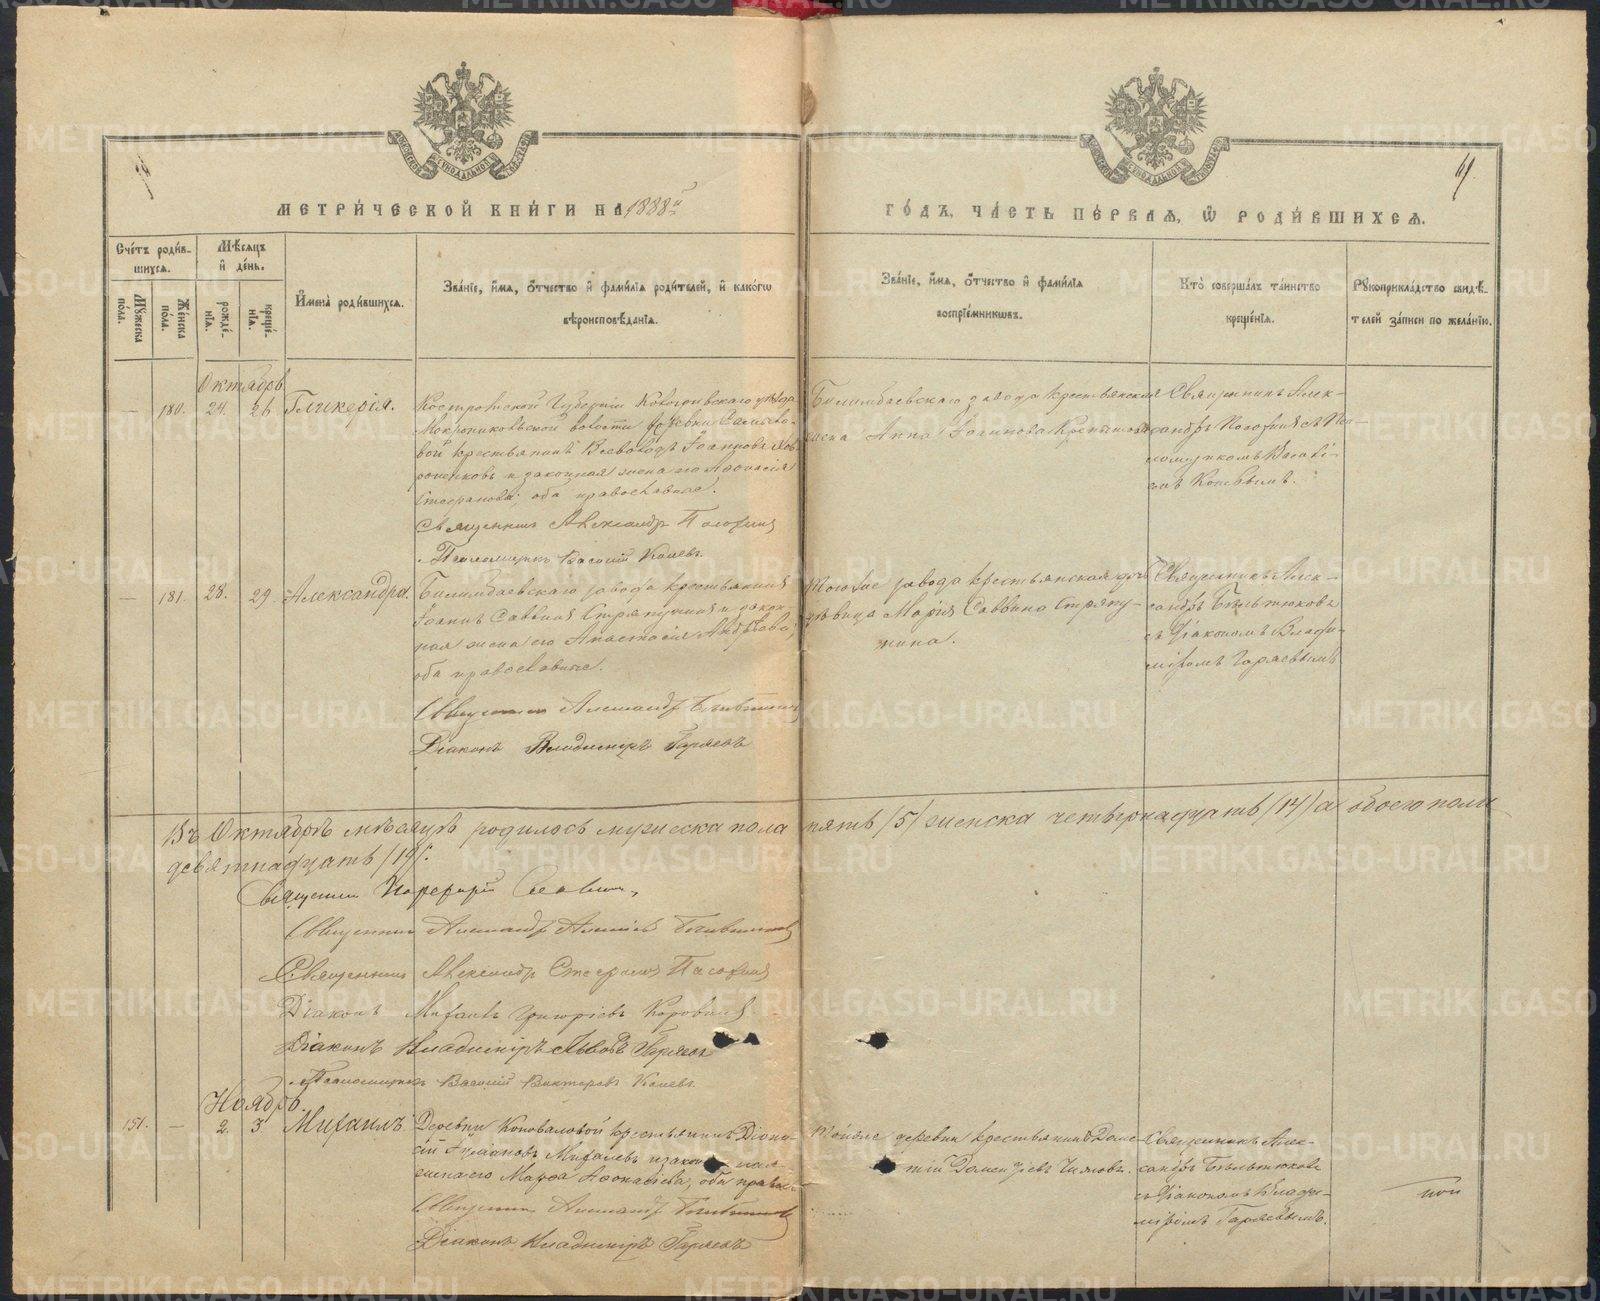 МЕТРИЧЕСКОЙ КНИГИ НА 1888й ГОДЪ, ЧАСТЬ ПЕРВАЯ, Ѡ РОДИВШИХСЯ.
Счетъ родившихся.
Мужеска пола.
Женска пола.
Мѣсяцъ и день.
рожденія.
крещенія.
Имена родившихся.
Званіе, имя, отчество и фамилія родителей, и какого вѣроисповѣданія.
Званіе, имя, отчество и фамилія воспріемниковъ.
Кто совершалъ таинство крещенія.
Рукоприкладство свидѣтелей записи по желанію.
Октябрь
180. 24. 26. Гликерія.
Костромской Губерніи Кологривскаго уѣзда
волости деревни
вой крестьянинъ Всеволодъ Іоанновъ
и законная жена его Афанасія
Стефанова, оба православные.
Священникъ Александръ
Псаломщикъ Василій Коневъ
Билимбаевскаго завода крестьянская
Анна
Священникъ Алек-
сандръ съ Пса-
ломщикомъ Василі-
емъ Коневымъ.
181. 28. 29. Александра.
Билимбаевскаго завода крестьянинъ
Іоаннъ Саввинъ Стряпунинъ и закон-
ная жена его Анастасія Андреева,
оба православные.
Священникъ Александръ Бѣльтюковъ
Діаконъ Владимиръ Гаряевъ
Тогоже завода крестьянская дѣ-
вица Марія Саввина Стряпу-
нина.
Священникъ Алек-
сандръ Бѣльтюковъ
съ Діакономъ Влади-
міромъ Гаряевымъ
Въ Октябрѣ мѣсяцѣ родилось мужеска пола пять /5/ женска четырнадцать /14/ а обоего пола
девятнадцать /19/.
Священникъ Порфирій Славнинъ
Священникъ Александръ Алексіевъ Бѣльтюковъ
Священникъ Александръ Стефановъ
Діаконъ Михаилъ Григоріевъ Коровинъ
Діаконъ Владиміръ Львовъ Гаряевъ
Псаломщикъ Василій Викторовъ Коневъ
Ноябрь.
151. 2. 3. Михаилъ
Деревни Коноваловой крестьянинъ Діони-
сій Михалевъ и законная
жена его Марфа Афонасіева, оба правос-
Священникъ Александръ Бѣльтюковъ
Діаконъ Владиміръ Гаряевъ
Тойже деревни крестьянинъ Доме-
тій Дометіевъ
Священникъ Алек-
сандръ Бѣльтюковъ
съ Діакономъ Влади-
міромъ Гаряевымъ.
METRIKI.GASO-URAL.RU